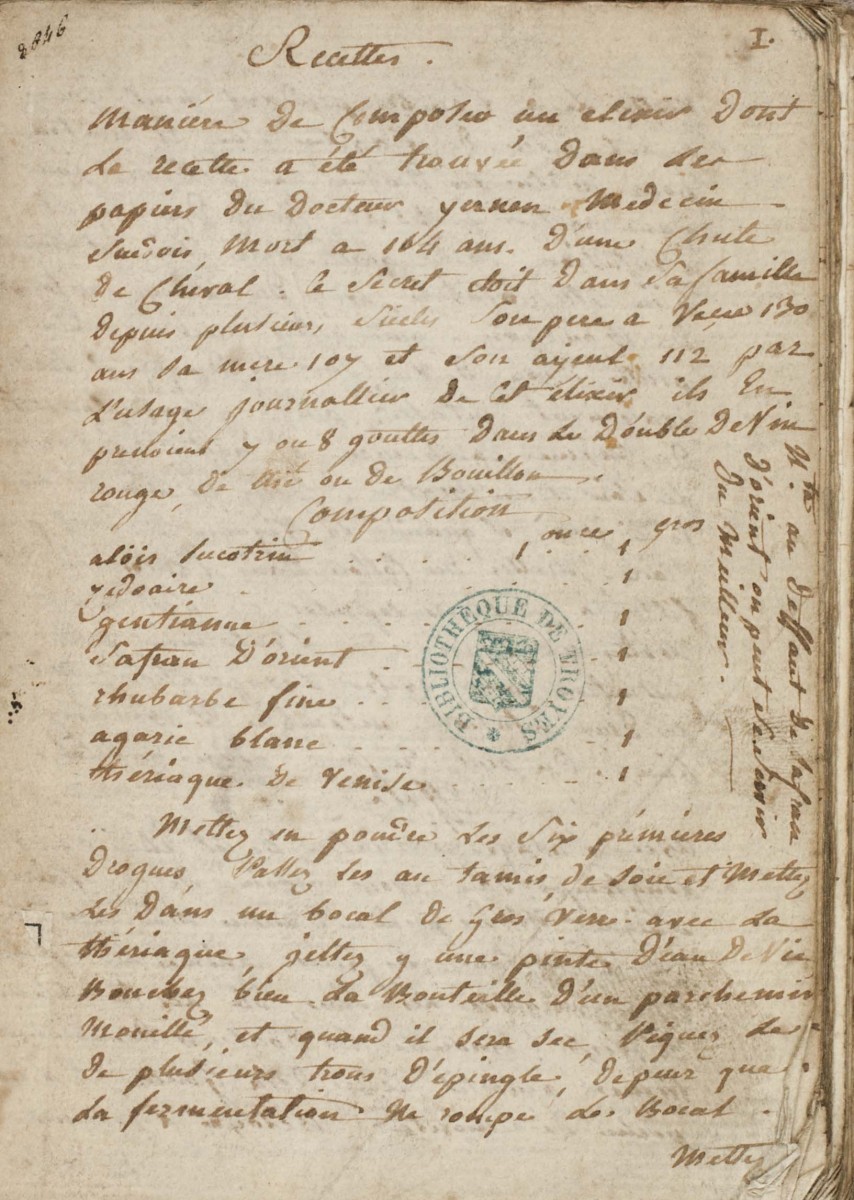 2846
I.
Recettes.
Maniére de Composer un elixir Dont
La recette a été trouvée Dans les
papiers Du Docteur yernen Medecin
Suédois, Mort a 104 ans. D'une Chute
De Chéval. le Secret étoit Dans Sa famille
Depuis plusieurs, Siecles Son pere a Vecu 130
ans Sa mere 107 et Son ayeul 112 par
L'usage journallier De Cet élixir ils En
prenoient 7 ou 8 gouttes Dans Le Double De Vin
rouge, De thé ou de Bouillon.
Composition
once gros
aloïs Sucotrin . . . . . . 1 . . . 1
zedoaire . . . . . . 1
gentianne . . . . . . 1
Safran D'orient . . . . . . 1
rhubarbe fine . . . . . . 1
agaric blanc . . . . . . 1
thériaque De Venise . . . . . 1
N.ta au Deffaut de Safran
D'orient on peut Se Servir
Du Meilleur.
BIBLIOTHÈQUE DE TROYES
Mettez en poudre Les Six prémieres
Drogues, Passez Les au tamis, de Soie et Mettez
Les Dans un bocal de Gros Verre avec La
thériaque, jettez y une pinte D'eau De Vie
Bouchez bien La Bouteille D'un parchemin
Mouillé, et quand il sera sec, Piquez Le
De plusieurs trous D'épingle, Depeur que
La fermentation Ne rompe Le Bocal.
Mettez